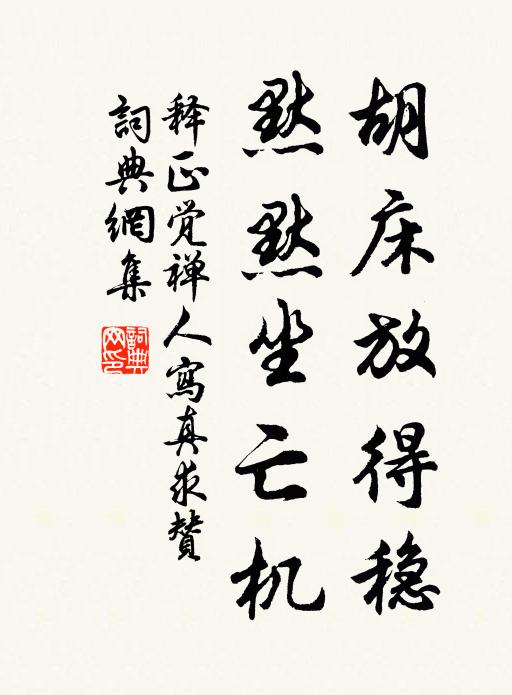 胡床放得稳
默默坐亡机
释正觉禅人寫真求賛
詞典網集
詞典
网印